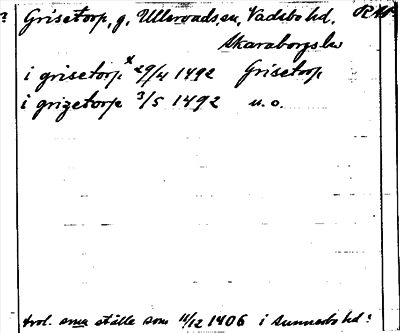 ? Grisetorp, g. Ullervads sn, Vadsbo hd,
Skaraborgs län
i grisetorp x 29/4 1492 Grisetorp
i grizetorp 3/5 1492 u.o.
trol. sma ställe som 11/12 1406 i Sunnerbo hd?